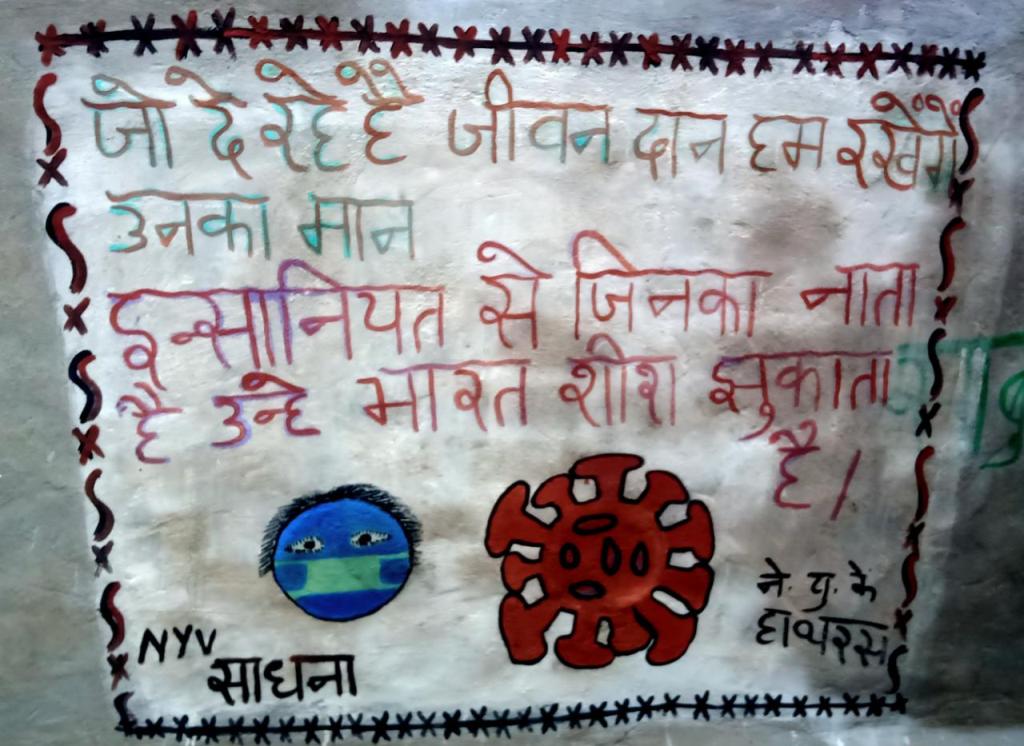 जो दे रहे है जीवन दान हम रखेगें
उनका मान
इन्सानियत से जिनका नाता
है उन्हे भारत शीश झुकाता
है।
ने. यु. के
हाथरस
NYV
साधना